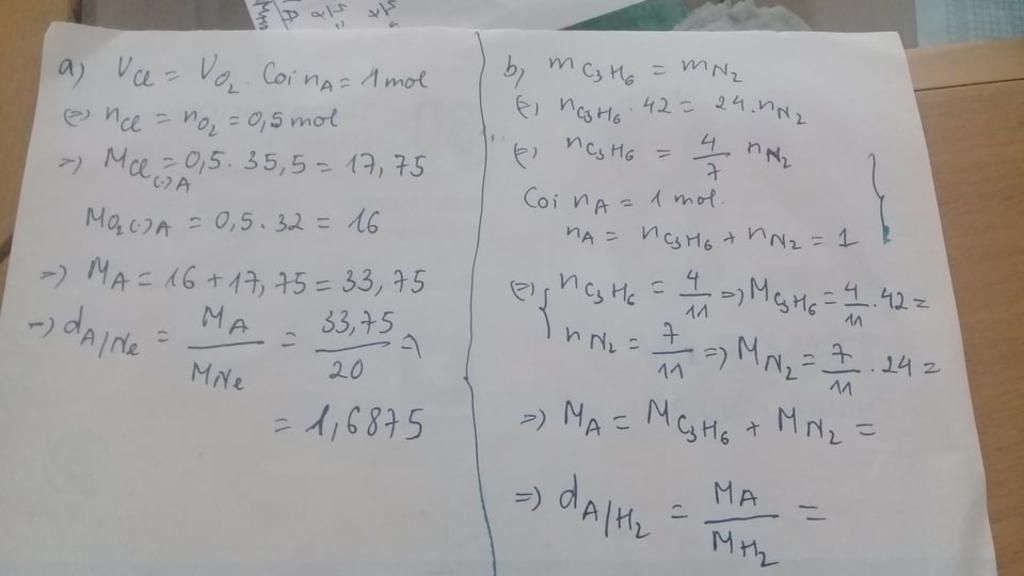 a) V_Cl = V_O2. Coi n_A = 1 mol
(=) n_Cl = n_O2 = 0,5 mol
=) M_Cl (-) A = 0,5 . 35,5 = 17,75
M_O2 (-) A = 0,5 . 32 = 16
=) M_A = 16 + 17,75 = 33,75
=) d_A/Ne = M_A / M_Ne = 33,75 / 20 =
= 1,6875
b) m_C3H6 = m_N2
(=) n_C3H6 . 42 = 24 . n_N2
(=) n_C3H6 = 4/7 n_N2
Coi n_A = 1 mol.
n_A = n_C3H6 + n_N2 = 1
(=) { n_C3H6 = 4/11 =) M_C3H6 = 4/11 . 42 =
n_N2 = 7/11 =) M_N2 = 7/11 . 24 =
=) M_A = M_C3H6 + M_N2 =
=) d_A/H2 = M_A / M_H2 =